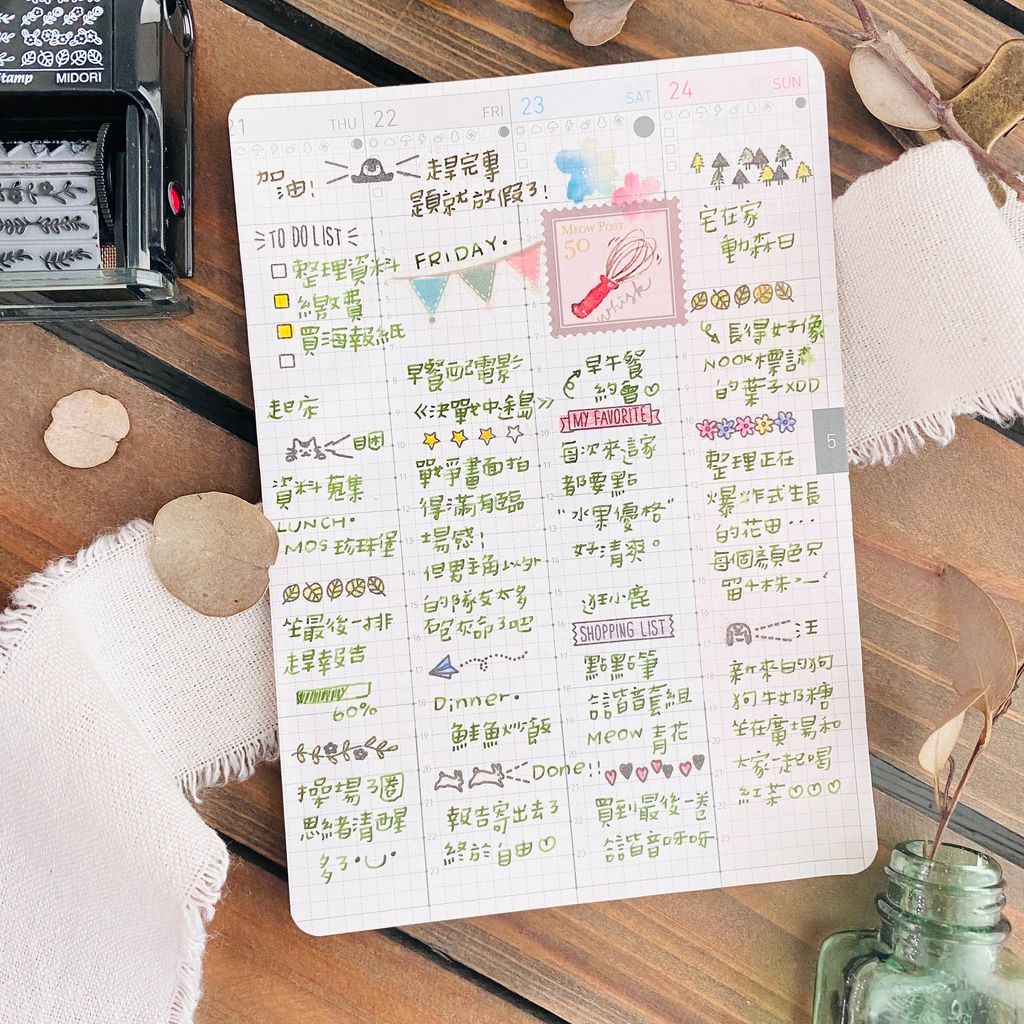 Stamp MIDORI
21 THU
加油!
趕完專
題就放假了!
TO DO LIST
整理資料
繳費
買海報紙
起床
困
資料蒐集
LUNCH.
MOS 珍珠堡
坐最後一排
趕報告
60%
操場3圈
思緒清醒
多了
22 FRI
FRIDAY.
早餐配電影
《決戰中途島》
戰爭畫面拍
得滿有臨
場感!
但男主角以外
的隊友太多
砲灰命了吧
Dinner.
鮭魚炒飯
Done!!
報告寄出去了
終於自由♡
23 SAT
MEOW POST
50
whisk
早午餐
約會♡
MY FAVORITE
每次來這家
都要點
"水果優格"
好清爽。
逛小鹿
SHOPPING LIST
點點筆
諧音套組
MEOW 青花
買到最後一卷
諧音呀呀
24 SUN
宅在家
動森日
長得好像
NOOK標誌
的葉子XDD
5
整理正在
爆炸式生長
的花田…
每個顏色只
留4株>-<
汪
新來的狗
狗牛奶糖
坐在廣場和
大家一起喝
紅茶♡♡♡